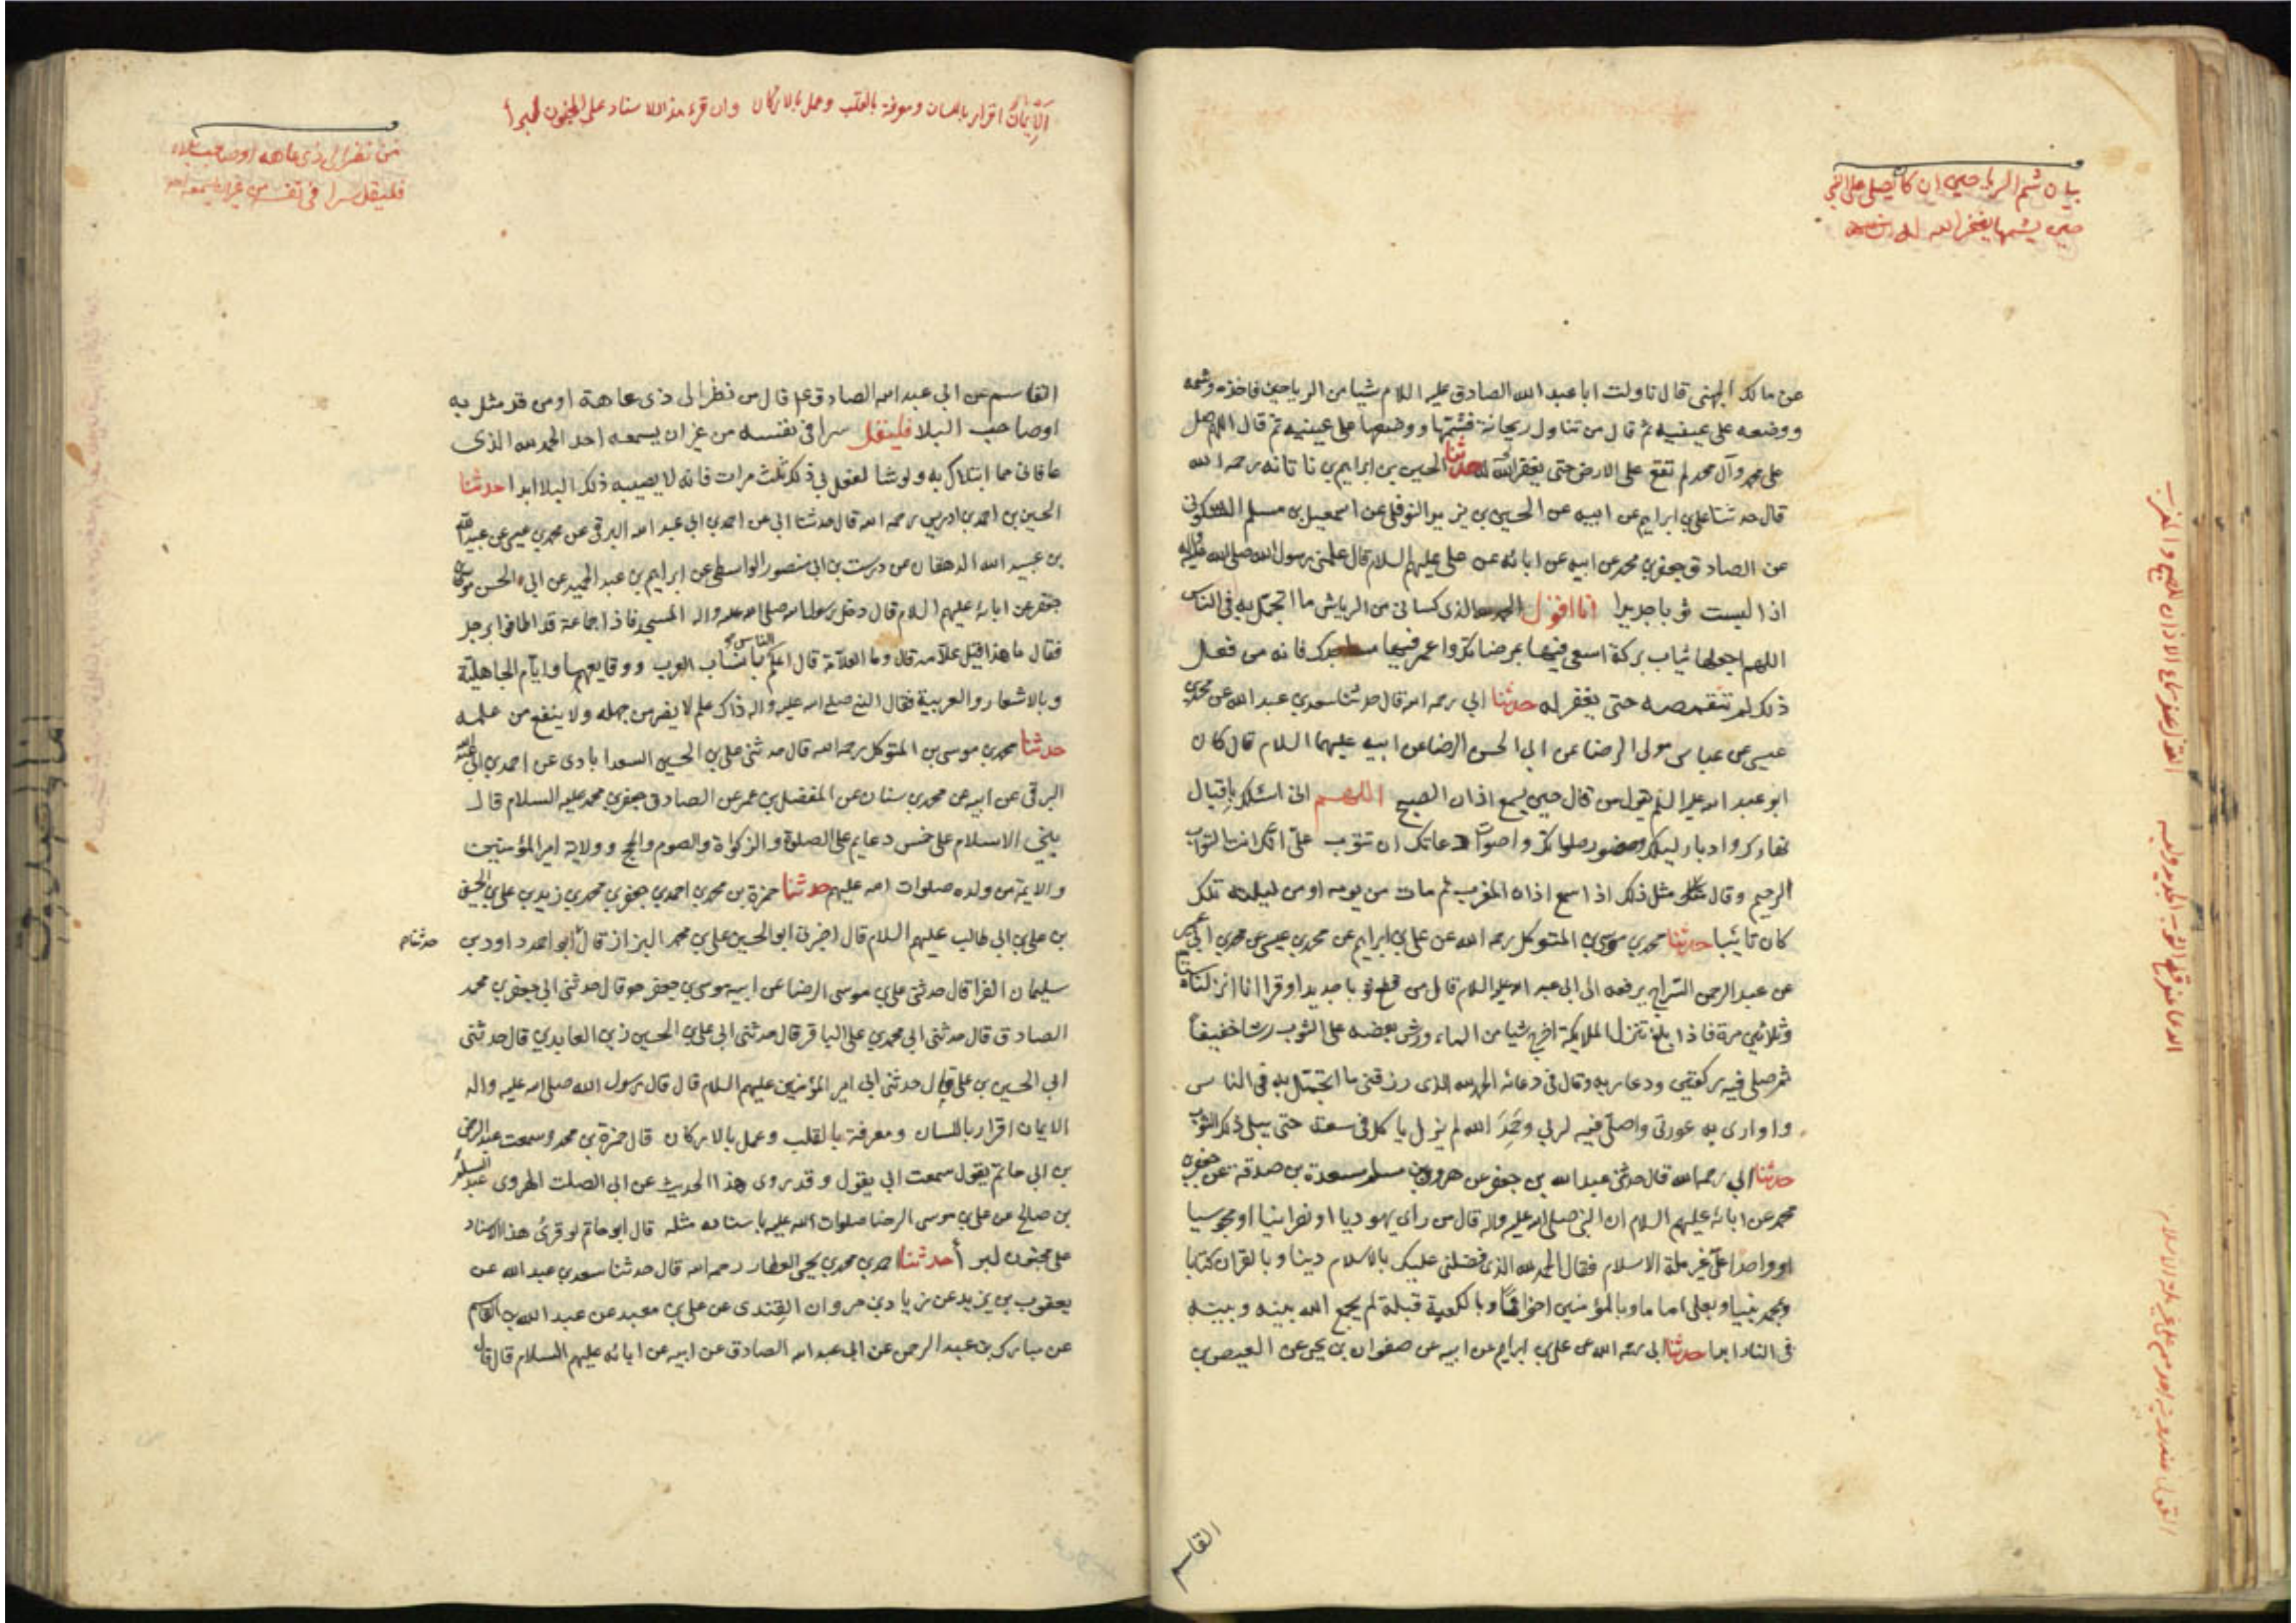 بيان شم الرياحين ان كان يصلى على النبي
حين يشمها يغفر الله له
عن مالك الجهنى قال ناولت ابا عبد الله الصادق عليه السلام شيا من الرياحين فاخذه وشمه
ووضعه على عينيه ثم قال من تناول ريحانة فشمها ووضعها على عينيه ثم قال اللهم صل
على محمد وآل محمد لم تقع على الارض حتى يغفر الله له حدثنا الحسين بن ابراهيم بن ناتانه رحمه الله
قال حدثنا علي بن ابراهيم عن ابيه عن الحسين بن يزيد النوفلي عن اسمعيل بن مسلم السكوني
عن الصادق جعفر بن محمد عن ابيه عن ابائه عن على عليهم السلام قال علمنى رسول الله صلى الله عليه واله
اذا لبست ثوبا جديدا انا اقول الحمد لله الذى كسانى من الرياش ما اتجمل به فى الناس
اللهم اجعلها ثياب بركة اسعى فيها بمرضاتك واعمر فيها مساجدك فانه من فعل
ذلك لم تتقمصه حتى يغفر له حدثنا ابي رحمه الله قال حدثنا سعد بن عبد الله عن محمد بن
عيسى عن عباس مولى الرضا عن ابى الحسن الرضا عن ابيه عليهما السلام قال كان
ابو عبد الله عليه السلم يقول من قال حين يسمع اذان الصبح اللهم انى اسئلك باقبال
نهارك وادبار ليلك وحضور صلواتك واصوات دعاتك ان تتوب علىّ انك انت التواب
الرحيم وقال مثل ذلك اذا سمع اذان المغرب ثم مات من يومه او من ليلته تلك
كان تائبا حدثنا محمد بن موسى بن المتوكل رحمه الله عن علي بن ابراهيم عن محمد بن عيسى عن محمد بن ابى عمير
عن عبد الرحمن السراج يرفعه الى ابى عبد الله عليه السلام قال من قطع ثوبا جديدا وقرا انا انزلناه ستا
وثلاثين مرة فاذا بلغ تنزل الملايكة اخرج شيا من الماء ورش بعضه على الثوب رشا خفيفاً
ثم صلى فيه ركعتين ودعا ربه وقال فى دعائه الحمد لله الذى رزقنى ما اتجمّل به فى الناس
واوارى به عورتى واصلى فيه لربي وحَمِدَ الله لم يزل ياكل فى سعة حتى يبلى ذلك الثوب
حدثنا ابي رحمه الله قال حدثنى عبد الله بن جعفر عن هرون بن مسلم مسعدة بن صدقة عن جعفر بن
محمد عن ابائه عليهم السلام ان النبى صلى الله عليه واله قال من راى يهوديا او نصرانيا او مجوسيا
او واحدا على غير ملة الاسلام فقال الحمد لله الذى فضلنى عليك بالاسلام دينا وبالقران كتابا
وبمحمد نبيا وبعلى اماما وبالمؤمنين اخوانا وبالكعبة قبلة لم يجمع الله بينه وبينه
فى النار ابدا حدثنا ابى رحمه الله عن علي بن ابراهيم عن ابيه عن صفوان بن يحيى عن العيص بن
القاسم
القول عند سماع الاذان للصبح و المغرب
الدعا عند قطع الثوب الجديد ولبسه
القول عند رويته احد من على غير ملة الاسلام
الإيمانُ اقرار باللسان ومعرفة بالقلب وعمل بالاركان وان قرء هذا الاسناد على المجنون لبرأ
من نظر الى ذى عاهه او صاحب بلاء
فليقل سرا فى نفسه من غير ان يسمعه احد
القاسم عن ابى عبد الله الصادق ع قال من نظر الى ذى عاهة او من قد مثل به
او صاحب البلا فليقل سرا فى نفسه من غير ان يسمعه احد الحمد لله الذى
عافانى مما ابتلاك به ولو شا لفعل بى ذلك ثلث مرات فانه لا يصيبه ذلك البلا ابدا حدثنا
الحسين بن احمد بن ادريس رحمه الله قال حدثنا ابى عن احمد بن ابى عبد الله البرقى عن محمد بن عيسى عن عبيد الله
بن عبيد الله الدهقان عن درست بن ابى منصور الواسطى عن ابراهيم بن عبد الحميد عن ابى الحسن موسى بن
جعفر عن ابائه عليهم السلام قال دخل رسول الله صلى الله عليه واله المسجد فاذا جماعة قد اطافوا برجل
فقال ما هذا فقيل علامه قال وما العلاّمة قال اعلم الناس بانساب العرب ووقايعهم وايام الجاهلية
وبالاشعار والعربية فقال النبى صلى الله عليه واله ذاك علم لا يضر من جهله ولا ينفع من علمه
حدثنا محمد بن موسى بن المتوكل رحمه الله قال حدثنى على بن الحسين السعدابادى عن احمد بن ابى عبد الله
البرقى عن ابيه عن محمد بن سنان عن المفضل بن عمر عن الصادق جعفر بن محمد عليه السلام قال
بنى الاسلام على خمس دعايم على الصلوة والزكواة والصوم والحج وولاية امير المؤمنين
والايمة من ولده صلوات الله عليهم حدثنا حمزة بن محمد بن احمد بن جعفر بن محمد بن زيد بن على بن الحسين
بن علي بن ابى طالب عليهم السلام قال اخبرنى ابو الحسين على بن محمد البزاز قال ابو احمد داود بن
حدثنا
سليمان الفرا قال حدثنى علي بن موسى الرضا عن ابيه موسى بن جعفر هو قال حدثنى ابى جعفر بن محمد
الصادق قال حدثنى ابى محمد بن على الباقر قال حدثنى ابى على بن الحسين زين العابدين قال حدثنى
ابى الحسين بن على قال حدثنى ابى امير المؤمنين عليهم السلام قال قال رسول الله صلى الله عليه واله
الايمان اقرار باللسان ومعرفة بالقلب وعمل بالاركان قال حمزة بن محمد وسمعت عبد الرحمن
بن ابى حاتم يقول سمعت ابى يقول وقد روى هذا الحديث عن ابى الصلت الهروى عبد السلام
بن صالح عن على بن موسى الرضا صلوات الله عليه باسناده مثله قال ابو حاتم لو قرئ هذا الاسناد
على مجنون لبرأ حدثنا احمد بن محمد بن يحيى العطار رحمه الله قال حدثنا سعد بن عبد الله عن
يعقوب بن يزيد عن زياد بن مروان القندى عن على بن معبد عن عبد الله بن القاسم
عن مبارك بن عبد الرحمن عن ابى عبد الله الصادق عن ابيه عن ابائه عليهم السلام قال قال